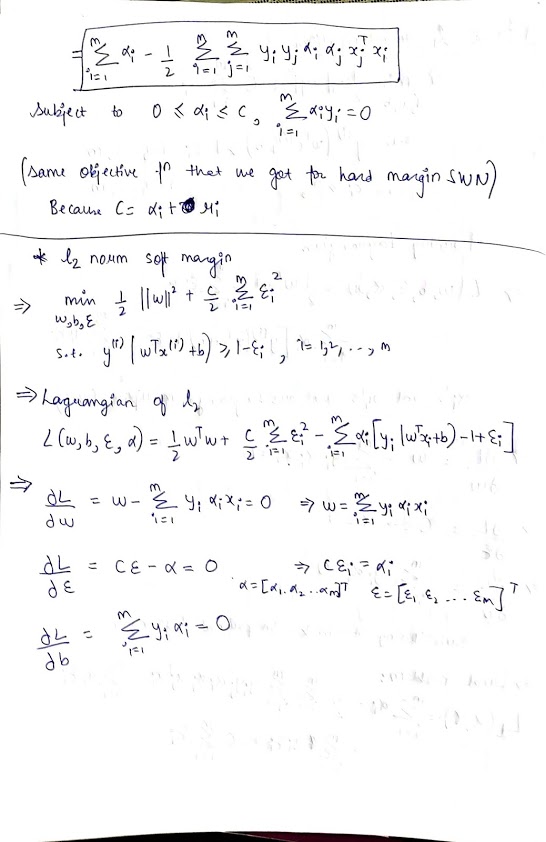 = ∑_{i=1}^{m} α_i - 1/2 ∑_{i=1}^{m} ∑_{j=1}^{m} y_i y_j α_i α_j x_j^T x_i
Subject to 0 ≤ α_i ≤ C, ∑_{i=1}^{m} α_i y_i = 0
(Same objective fn that we got for hard margin SVM)
Because C = α_i + μ_i
* l_2 norm soft margin
⇒ min_{w,b,ε} 1/2 ||w||^2 + C/2 ∑_{i=1}^{m} ε_i^2
s.t. y^{(i)} (w^T x^{(i)} + b) ≥ 1 - ε_i, i = 1, 2, ..., m
⇒ Laguangian of l_2
L(w, b, ε, α) = 1/2 w^T w + C/2 ∑_{i=1}^{m} ε_i^2 - ∑_{i=1}^{m} α_i [y_i (w^T x_i + b) - 1 + ε_i]
⇒
∂L/∂w = w - ∑_{i=1}^{m} y_i α_i x_i = 0 ⇒ w = ∑_{i=1}^{m} y_i α_i x_i
∂L/∂ε = Cε - α = 0 ⇒ Cε_i = α_i
α = [α_1, α_2 .. α_m]^T ε = [ε_1 ε_2 ... ε_m]^T
∂L/∂b = ∑_{i=1}^{m} y_i α_i = 0